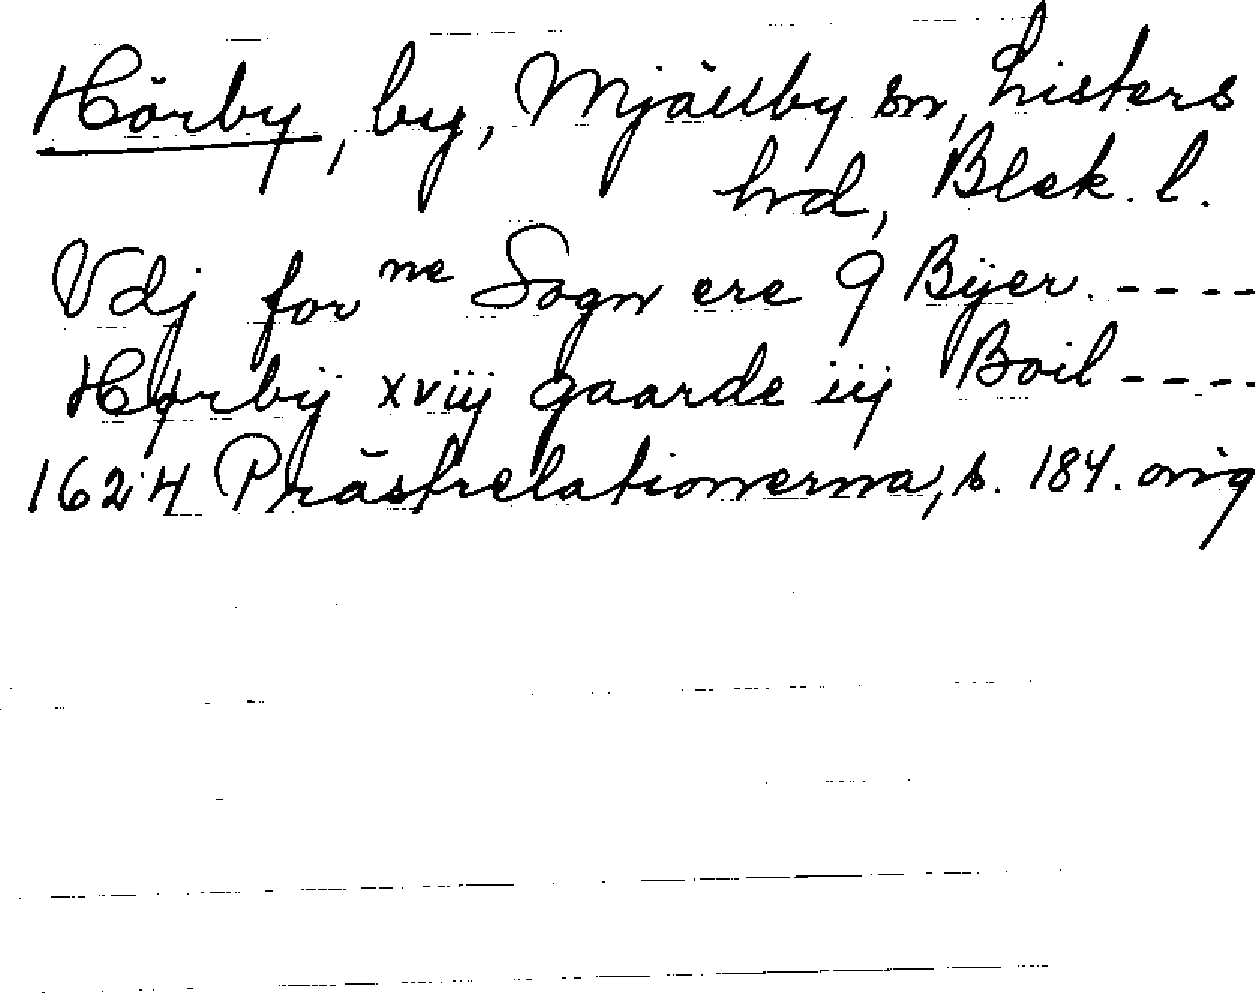 Hörby, by, Mjällby sn, Listers
hrd, Blek. l.
Vdj for ne Sogn ere 9 Bÿer. ----
Hørbÿ xviij gaarde iij Boil ----
1624 Prästrelationerna, s. 184. orig